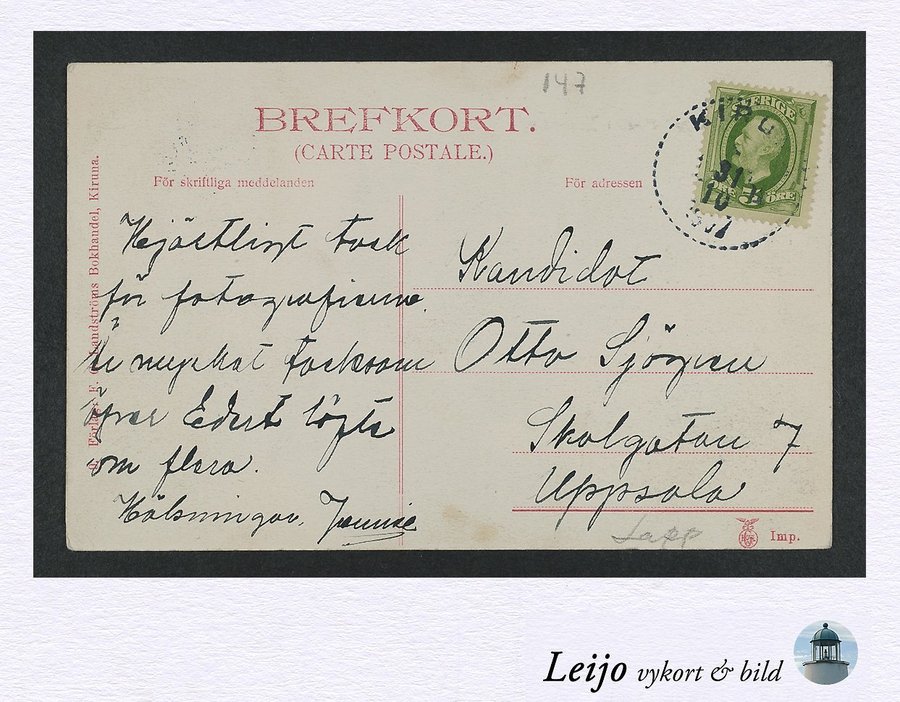 147
BREFKORT.
(CARTE POSTALE.)
För skriftliga meddelanden
För adressen
SVERIGE
ÖRE ÖRE
31
10
Landströms Bokhandel, Kiruna.
Hjärtligt tack
för fotografierna.
mycket tacksam
Edert löfte
om flera.
Hälsningar.
Kandidat
Otto Sjögren
Skolgatan 7
Uppsala
Lapp
Imp.
Leijo vykort & bild